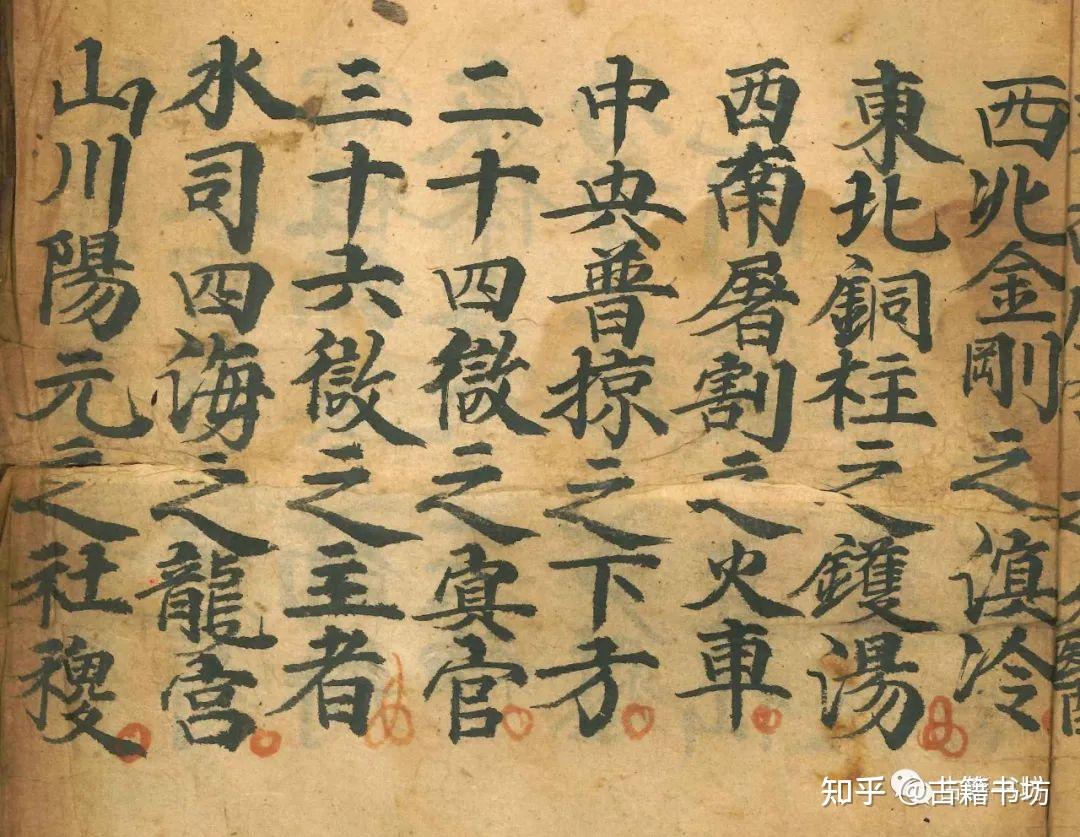 西北金剛之溟冷
東北銅柱之鑊湯
西南屠割之火車
中央普掠之下方
二十四獄之冥官
三十六獄之主者
水司四海之龍宮
山川陽元之社稷
知乎 @古籍书坊